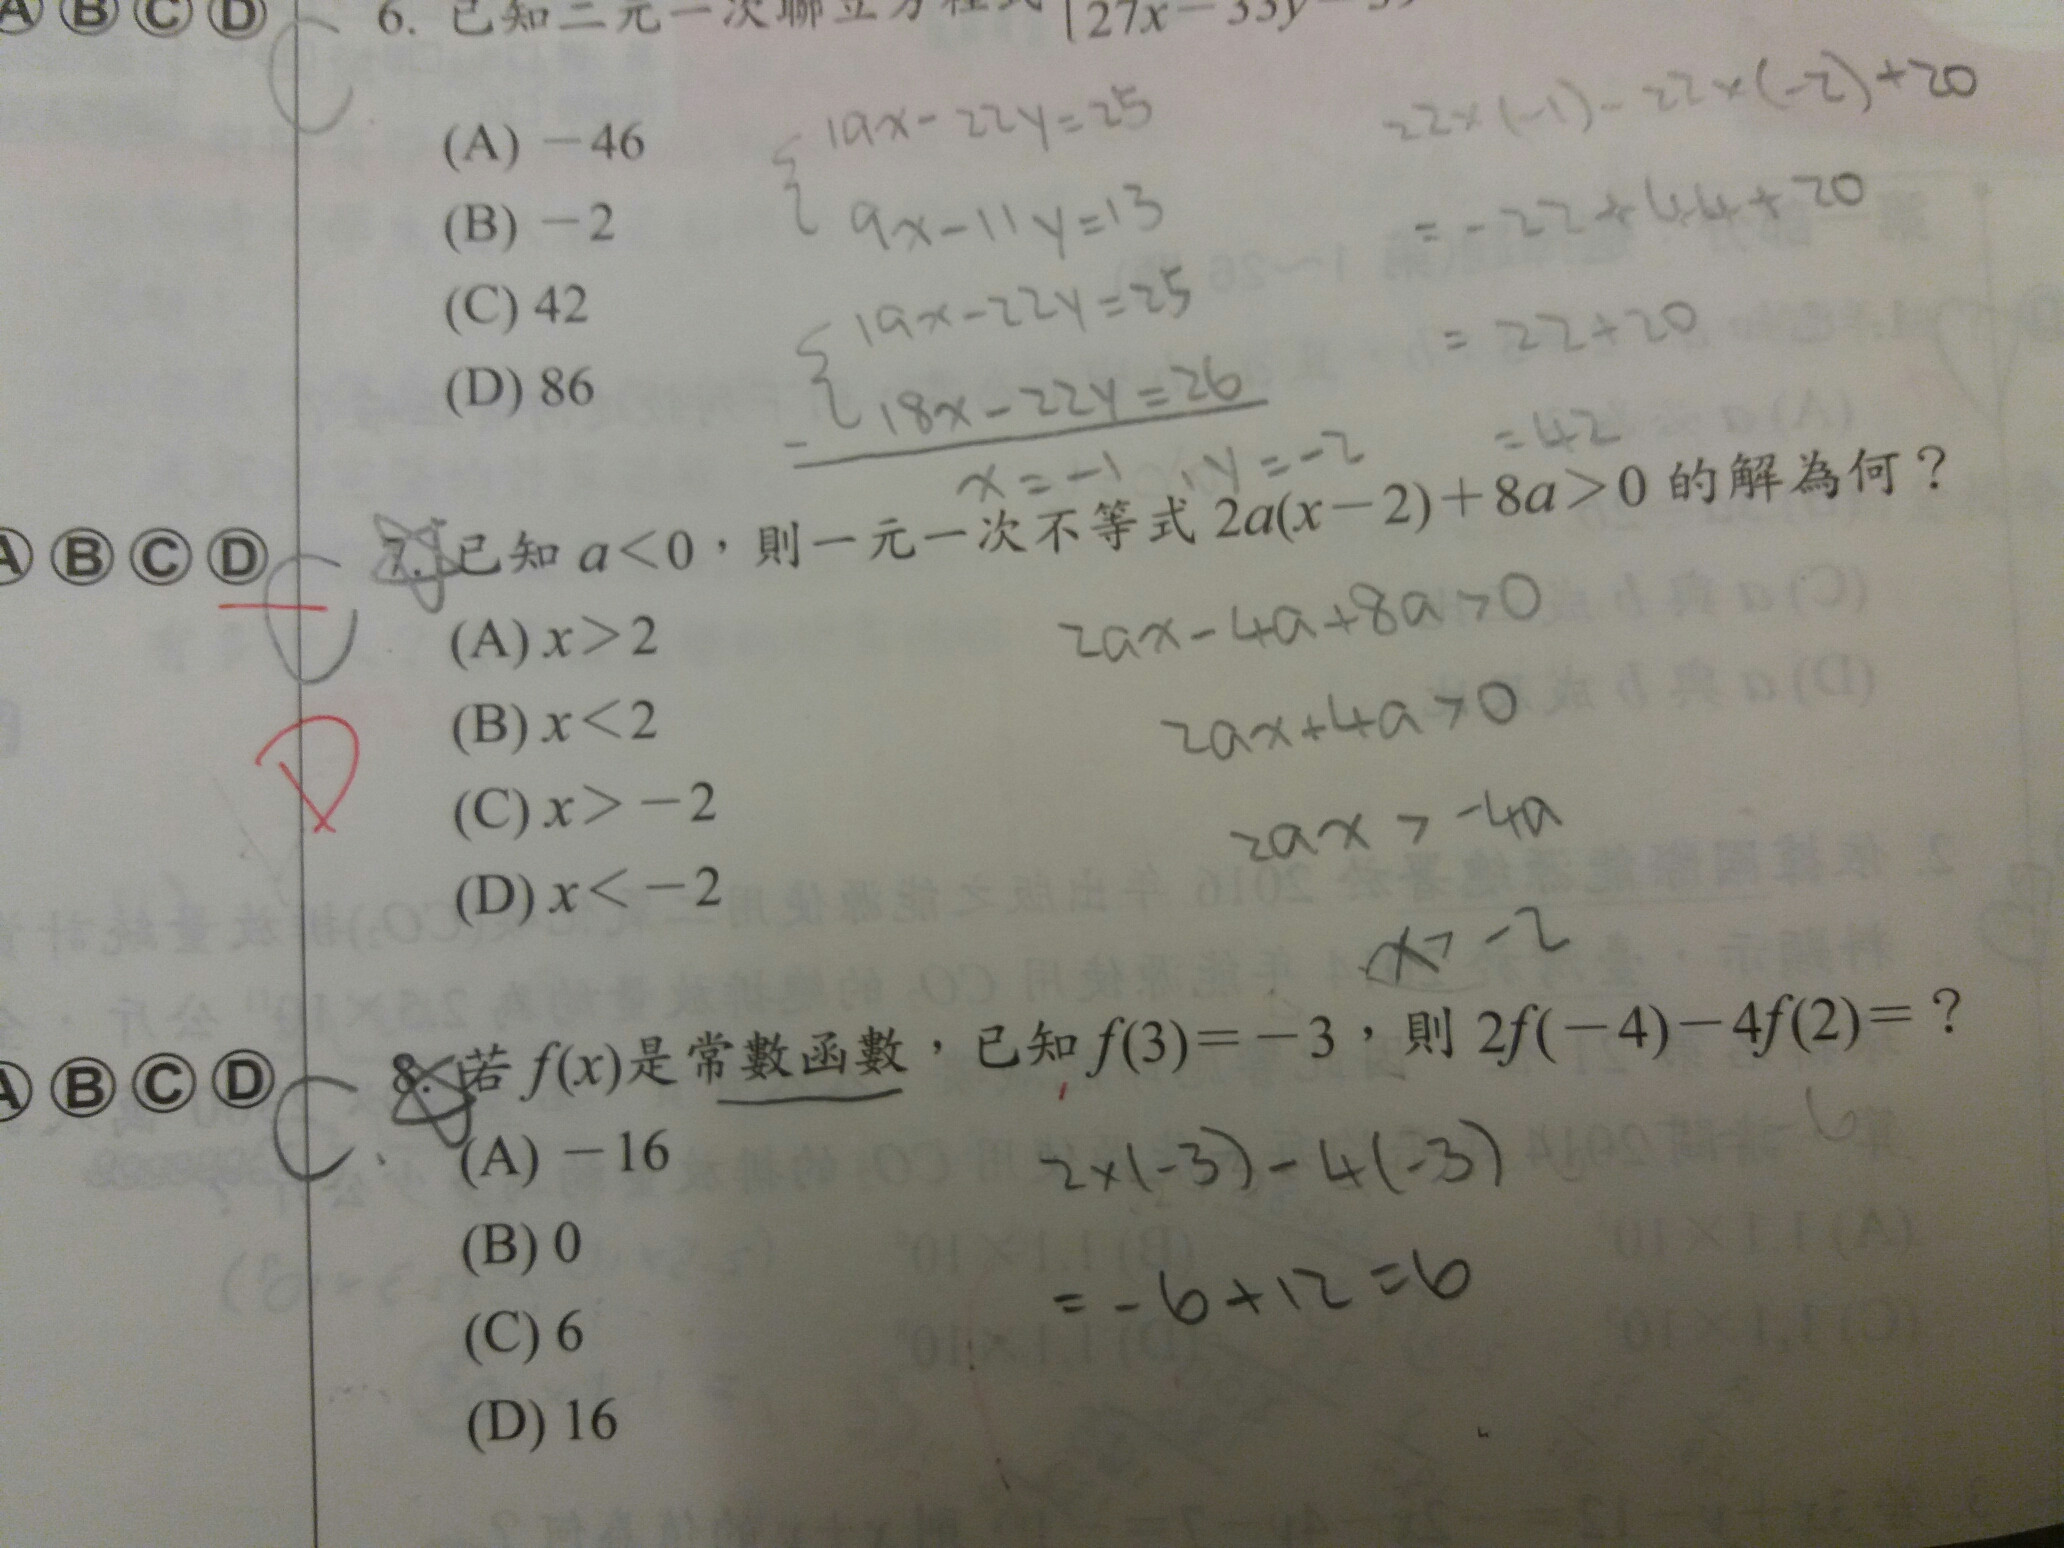 Ⓐ Ⓑ Ⓒ Ⓓ C 6. 已知二元一次聯立方程式
(A) −46
(B) −2
(C) 42
(D) 86
19x-22y=25
9x-11y=13
19x-22y=25
18x-22y=26
x=-1 , y=-2
22×(-1)-22×(-2)+20
=-22+44+20
=22+20
=42
Ⓐ Ⓑ Ⓒ Ⓓ C 7. 已知 a<0,則一元一次不等式 2a(x−2)+8a>0 的解為何?
D
(A) x>2
(B) x<2
(C) x>−2
(D) x<−2
2ax-4a+8a>0
2ax+4a>0
2ax>-4a
x>-2
Ⓐ Ⓑ Ⓒ Ⓓ C 8. 若 f(x)是常數函數,已知 f(3)=−3,則 2f(−4)−4f(2)=?
(A) −16
(B) 0
(C) 6
(D) 16
2×(-3)-4(-3)
=-6+12=6